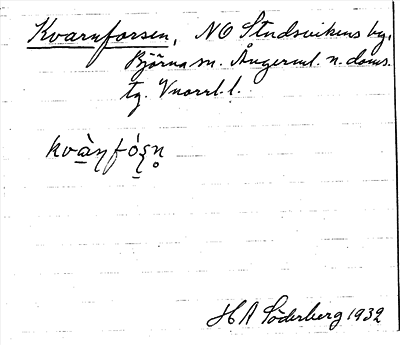 Kvarnforsen, NO Studsvikens by,
Björna sn. Ångerml. n. doms.
tg. Vnorrl. l.
kvàṇfóṣn̥
H A Söderberg 1932